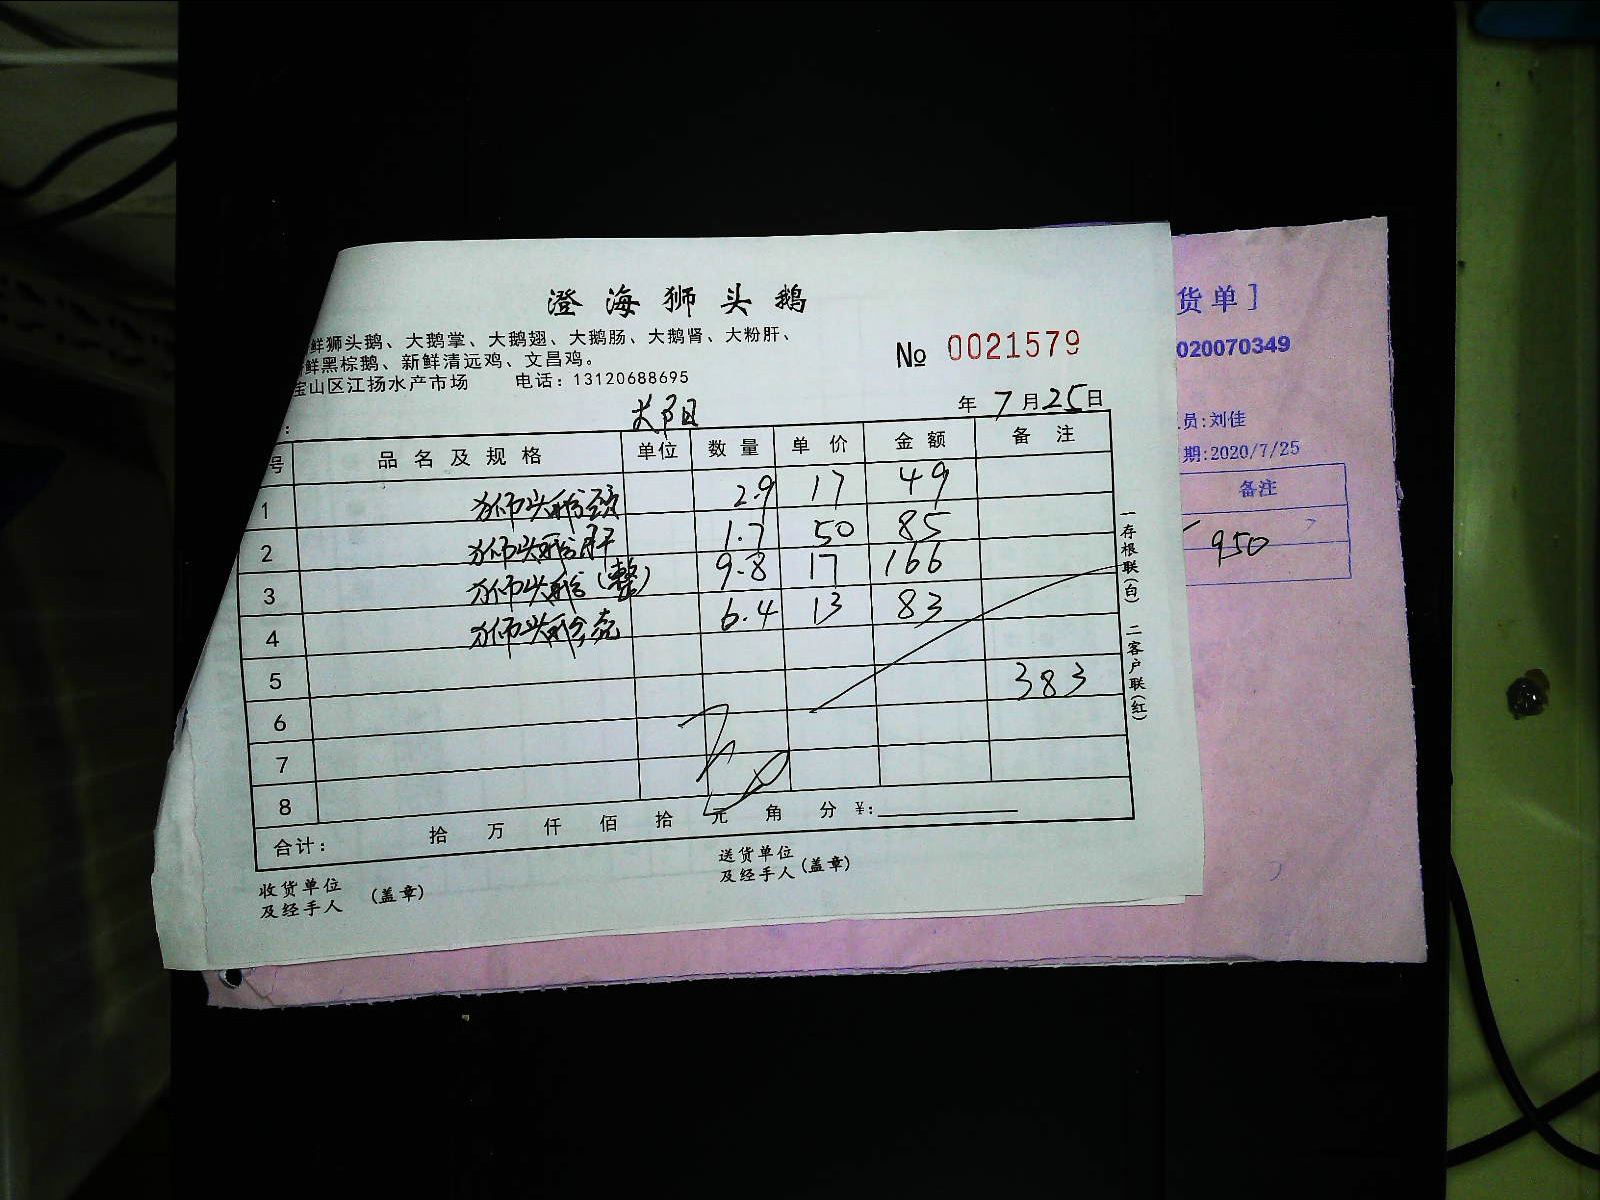 澄海狮头鹅
鲜狮头鹅、大鹅掌、大鹅翅、大鹅肠、大鹅肾、大粉肝、
鲜黑棕鹅、新鲜清远鸡、文昌鸡。
宝山区江扬水产市场 电话：13120688695
№ 0021579
年 7 月 25 日
：
号 品名及规格 单位 数量 单价 金额 备注
1 狮头鹅颈 2.9 17 49
2 狮头鹅肝 1.7 50 85
3 狮头鹅(整) 9.8 17 166
4 狮头鹅壳 6.4 13 83
5 383
6
7
8
合计： 拾 万 仟 佰 拾 元 角 分 ¥:
收货单位
及经手人 (盖章)
送货单位
及经手人 (盖章)
一存根联(白) 二客户联(红)
货单]
020070349
员:刘佳
期:2020/7/25
备注
950